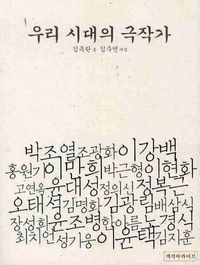 우리 시대의 극작가
박조열조광화이강백
홍원기이만희박근형이현화
고연옥윤대성정의신정복근
오태석김명화김광림배삼식
장성희윤조병한아름노경식
최치언성기웅이윤택김지훈